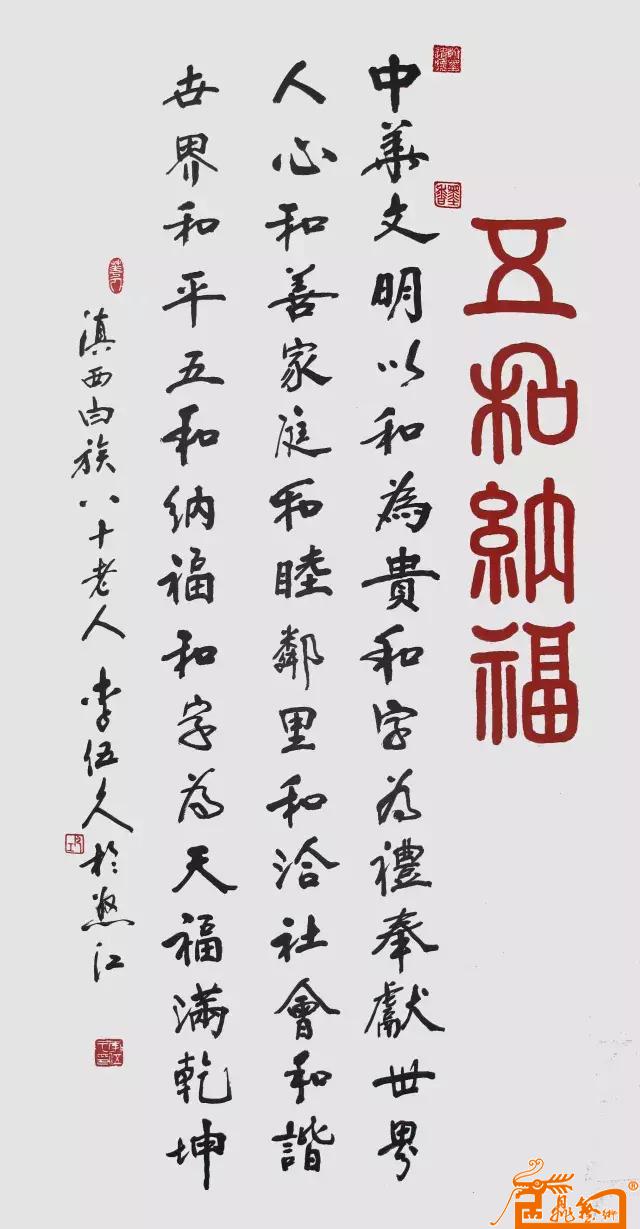 五和納福
中華文明以和為貴和字為禮奉獻世界
人心和善家庭和睦鄰里和洽社會和諧
世界和平五和纳福和字為天福满乾坤
滇西白族八十老人李伍久於怒江